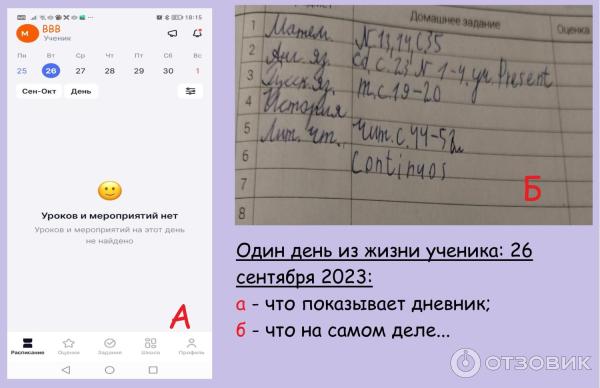 18:15
M
BBB
Ученик
Пн Вт Ср Чт Пт Сб Вс
25 26 27 28 29 30 1
Сен-Окт День
Уроков и мероприятий нет
Уроков и мероприятий на этот день
не найдено
А
Расписание Оценки Задания Школа Профиль
Домашнее задание Оценка
1 Матем. N.13,14,с35
2 Анг. яз. сд. с. 23, N 1-4, уч. Present
3 Русск. яз. т.с.19-20
4 История
5 Лит. чт., Чит. с. 44-52
6 Continuos
7
8
Б
Один день из жизни ученика: 26
сентября 2023:
а - что показывает дневник;
б - что на самом деле...
ОТЗОВИК